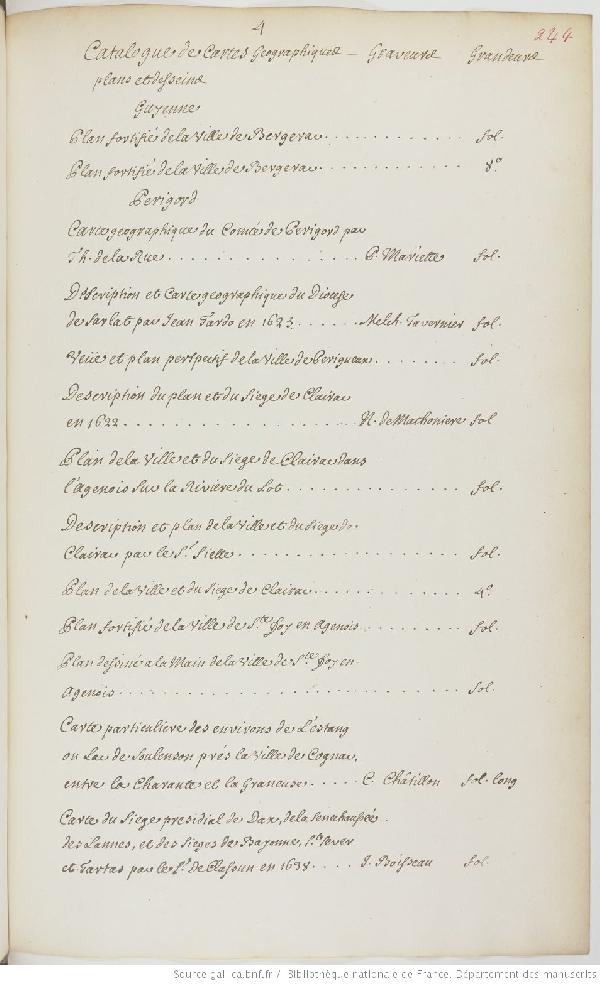 4
244
Catalogue de Cartes Geographiques – Graveurs Grandeurs
plans et desseins
Guyenne
Plan fortifié de la Ville de Bergerac . . . . . . . . . . . fol.
Plan fortifié de la Ville de Bergerac . . . . . . . . . . . 8°
Perigord
Carte geographique du Comté de Perigord par
Th. de la Rue . . . . . . . . . . . . . . P. Mariette fol.
Description et Carte geographique du Diocese
de Sarlat par Jean Tardo en 1625 . . . . . . Melch. Tavernier fol.
Veüe et plan perspectif de la Ville de Perigueux . . . . . . . fol.
Description du plan et du Siege de Clairac
en 1622 . . . . . . . . . . . . . . . . . N. de Mathoniere fol
Plan de la Ville et du Siege de Clairac dans
l'Agenois sur la Riviere du Lot . . . . . . . . . . . . . fol.
Description et plan de la Ville et du Siege de
Clairac par le Sr. Sielle . . . . . . . . . . . . . . . . fol.
Plan de la Ville et du Siege de Clairac . . . . . . . . . . . 4°
Plan fortifié de la Ville de Ste. foy en Agenois . . . . . . . . fol.
Plan dessiné a la Main de la Ville de Ste. foy en
Agenois . . . . . . . . . . . . . . . . . . . . . . . . fol.
Carte particuliere des environs de L'estang
ou Lac de Soulenson prés la Ville de Cognac,
entre la Charante et la Graneuse . . . . . C. Châtillon fol. long
Carte du Siege presidial de Dax, de la Senechaussée
des Lannes, et des Sieges de Bayonne, St. Sever
et Tartas par le Sr. de Clasoun en 1638 . . . . J. Boisseau fol
Source gallica.bnf.fr / Bibliothèque nationale de France. Département des manuscrits